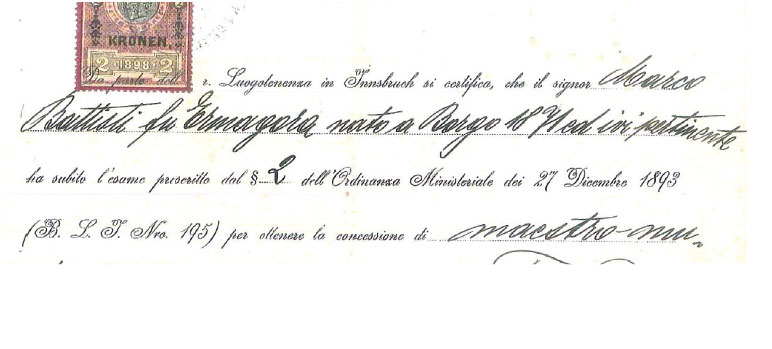 KRONEN.
2 1898 2
Da parte dell' r. Luogotenenza in Innsbruck si certifica, che il signor Marco
Battisti fu Ermagora nato a Borgo 1871 ed ivi pertinente
ha subito l'esame prescritto dal § 2 dell'Ordinanza Ministeriale dei 27 Dicembre 1893
(B. L. I. Nro. 195) per ottenere la concessione di maestro-mu-